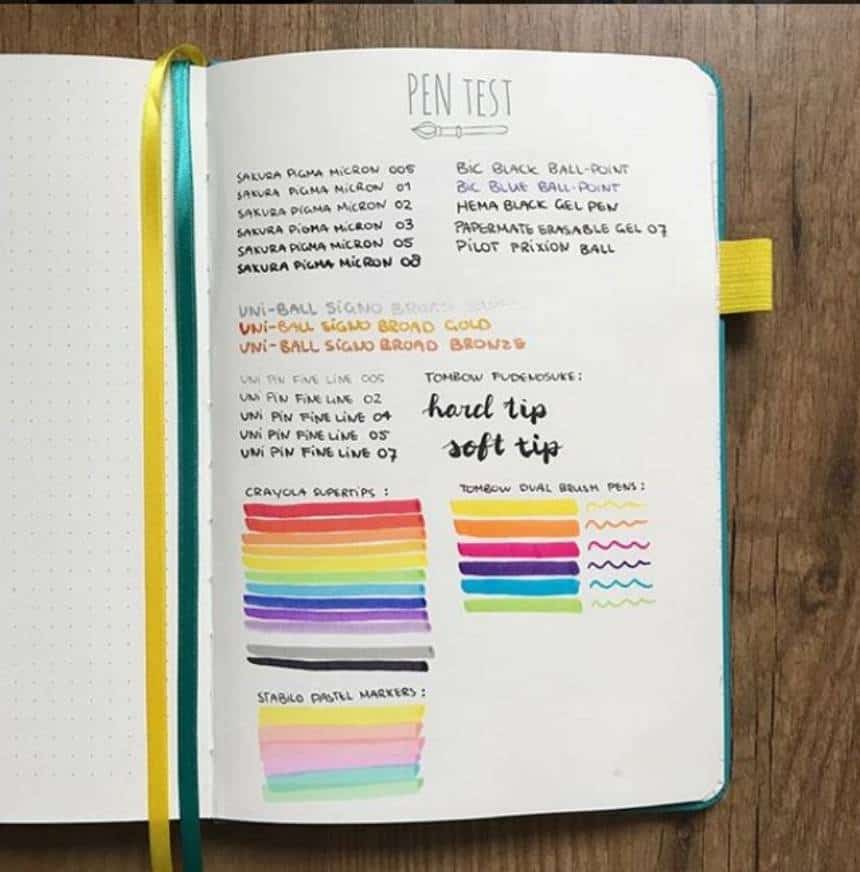 PEN TEST
SAKURA PIGMA MICRON 005
SAKURA PIGMA MICRON 01
SAKURA PIGMA MICRON 02
SAKURA PIGMA MICRON 03
SAKURA PIGMA MICRON 05
SAKURA PIGMA MICRON 08
BIC BLACK BALL-POINT
BIC BLUE BALL-POINT
HEMA BLACK GEL PEN
PAPERMATE ERASABLE GEL 07
PILOT FRIXION BALL
UNI-BALL SIGNO BROAD
UNI-BALL SIGNO BROAD GOLD
UNI-BALL SIGNO BROAD BRONZE
UNI PIN FINE LINE 005
UNI PIN FINE LINE 02
UNI PIN FINE LINE 04
UNI PIN FINE LINE 05
UNI PIN FINE LINE 07
TOMBOW FUDENOSUKE:
hard tip
soft tip
CRAYOLA SUPERTIPS:
TOMBOW DUAL BRUSH PENS:
STABILO PASTEL MARKERS: